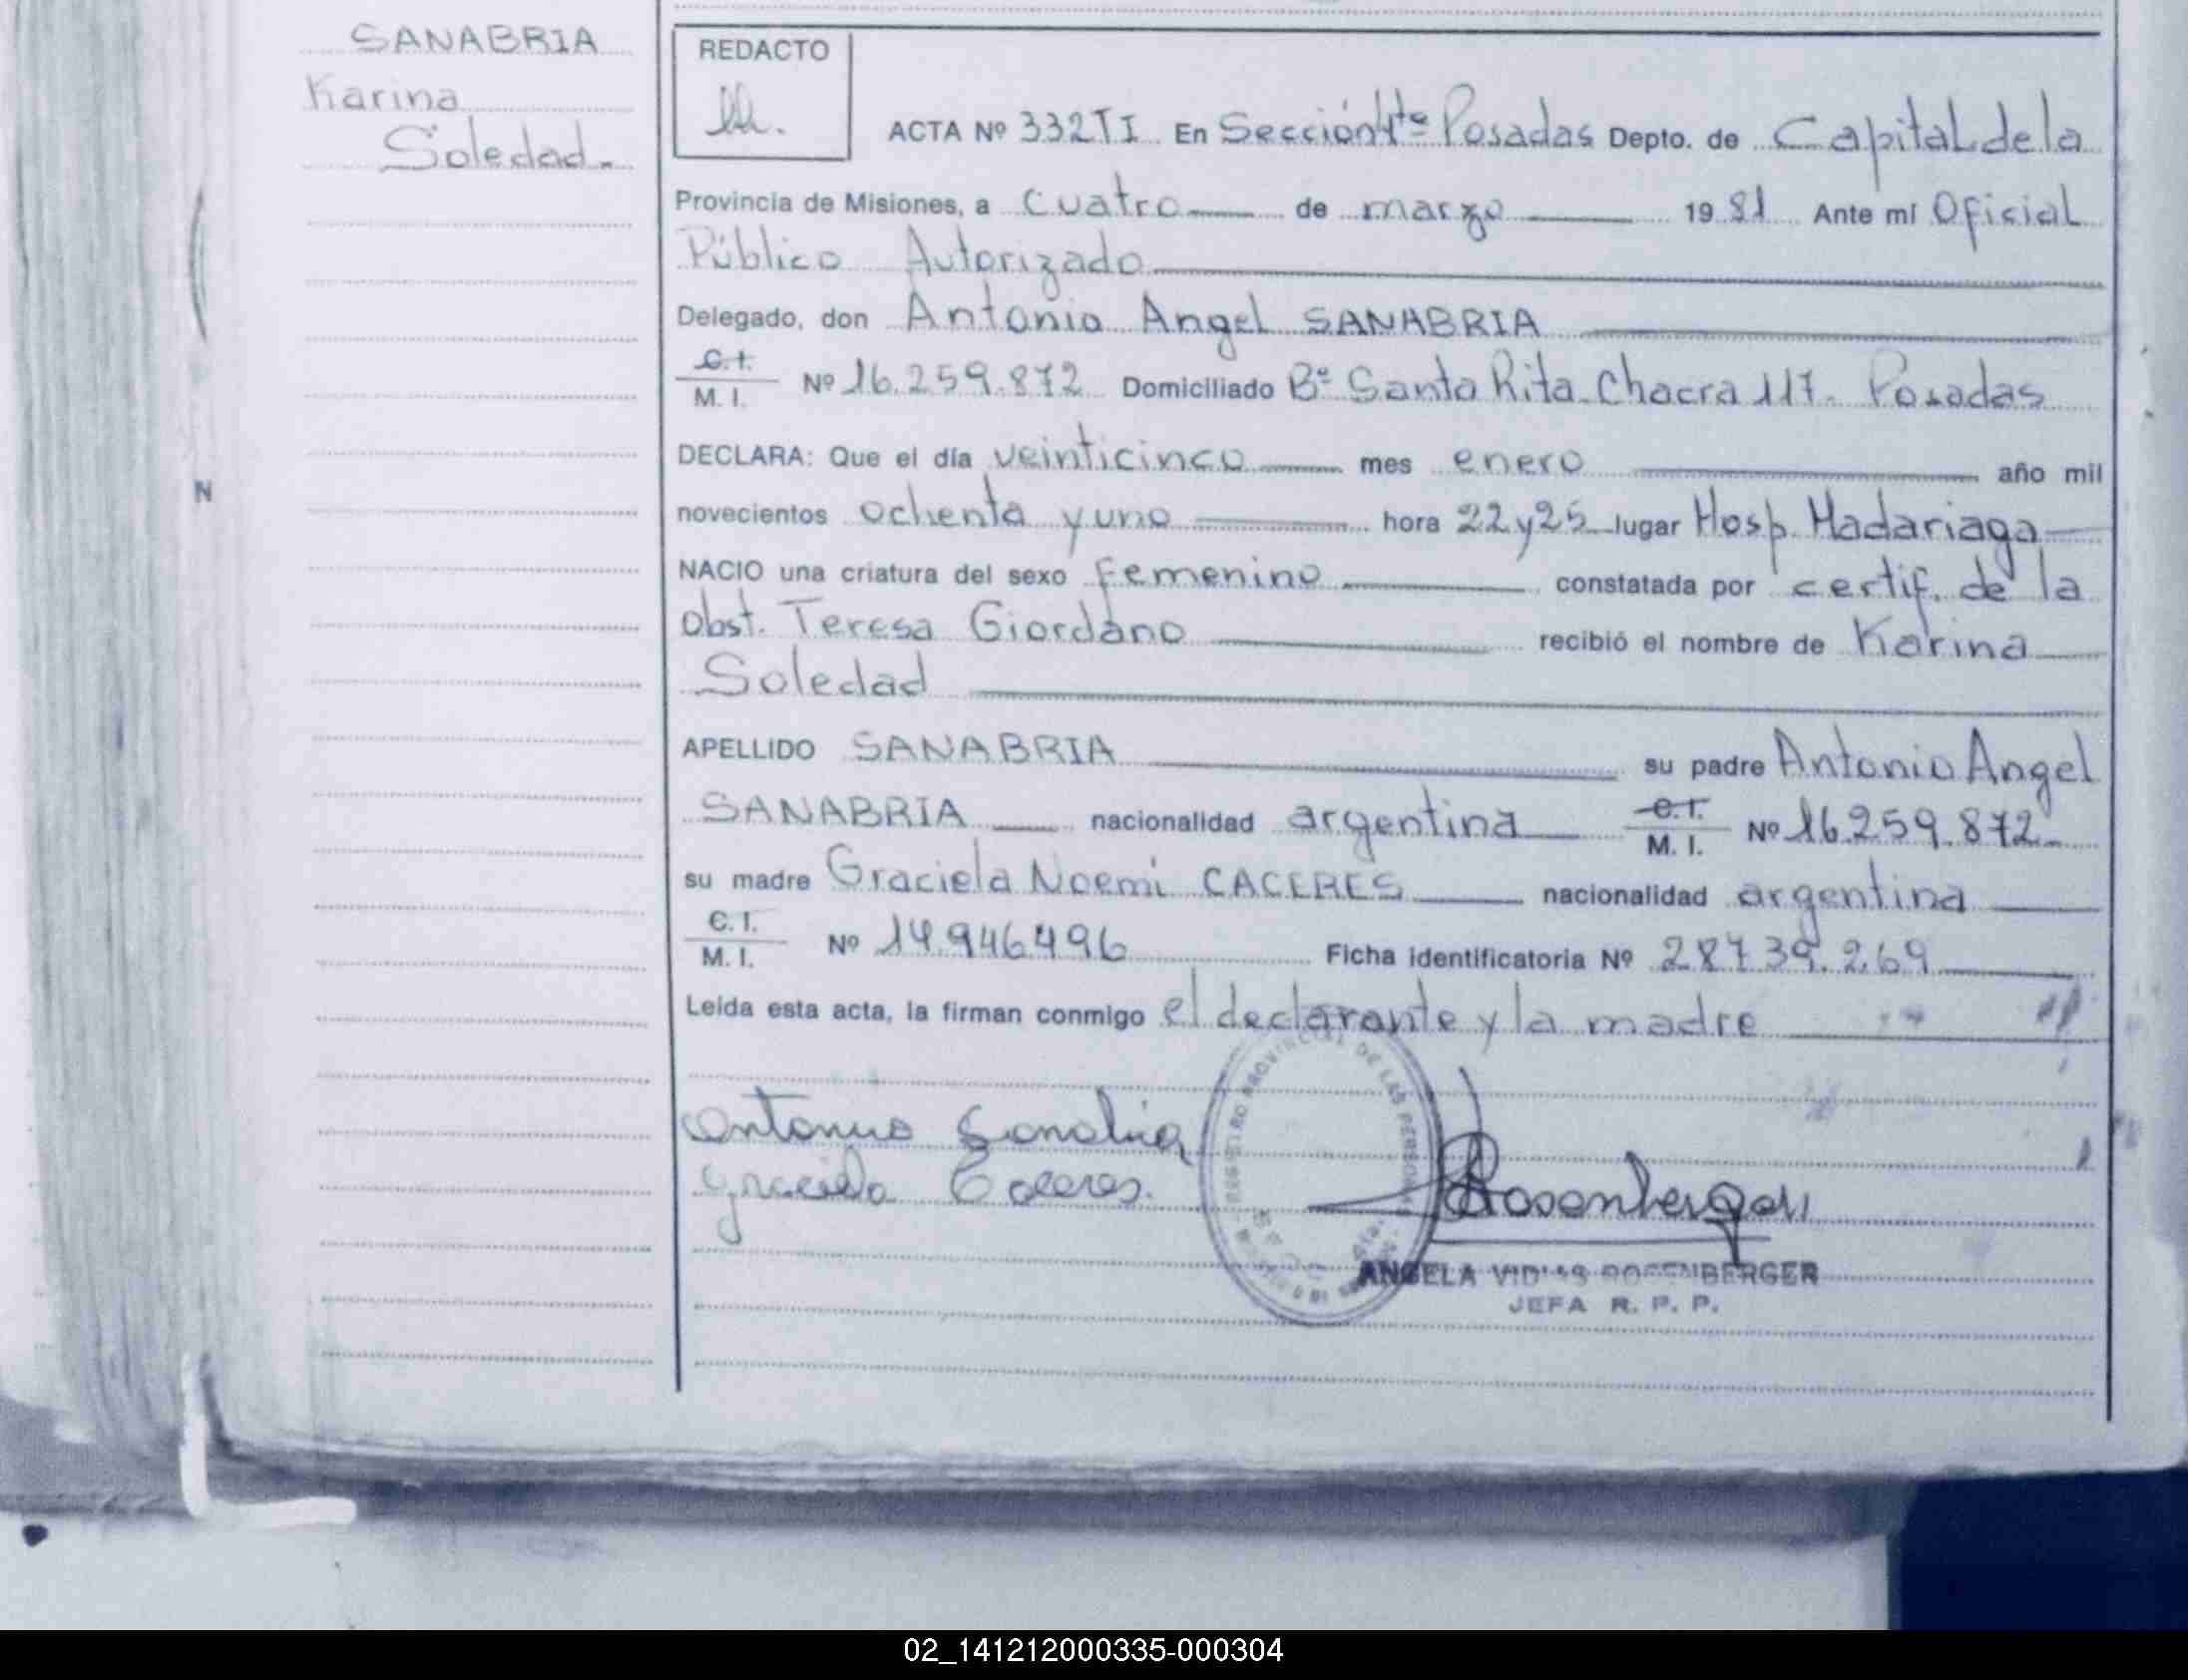 SANABRIA
Karina
Soledad.
REDACTO
ACTA Nº 332TI En Sección 4ta Posadas Depto. de Capital de la
Provincia de Misiones, a cuatro de marzo 1981 Ante mí Oficial
Público Autorizado
Delegado, don Antonio Angel SANABRIA
C.I.
M. I. Nº 16.259.872 Domiciliado Bº Santa Rita. Chacra 117. Posadas
DECLARA: Que el día veinticinco mes enero año mil
novecientos ochenta y uno hora 22 y 25 lugar Hosp. Madariaga
NACIO una criatura del sexo femenino constatada por certif. de la
obst. Teresa Giordano recibió el nombre de Karina
Soledad
APELLIDO SANABRIA su padre Antonio Angel
SANABRIA nacionalidad argentina C.I. M. I. Nº 16.259.872
su madre Graciela Noemi CACERES nacionalidad argentina
C.I.
M. I. Nº 14.946496 Ficha identificatoria Nº 28739.269
Leída esta acta, la firman conmigo el declarante y la madre
REGISTRO PROVINCIAL DE LAS PERSONAS
Antonio Sanabria
Graciela Caceres.
Rosenberger
ANGELA ROSENBERGER
JEFA R. P. P.
N
02_141212000335-000304